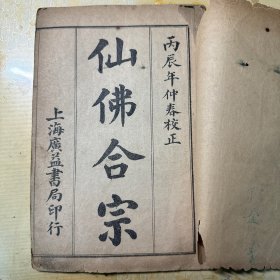 丙辰年仲春校正
仙佛合宗
上海廣益書局印行